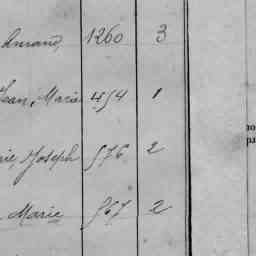 Amand, 1260 3
Jean, Marie 454 1
rie, Joseph 576 2
Marie 567 2
no
pa